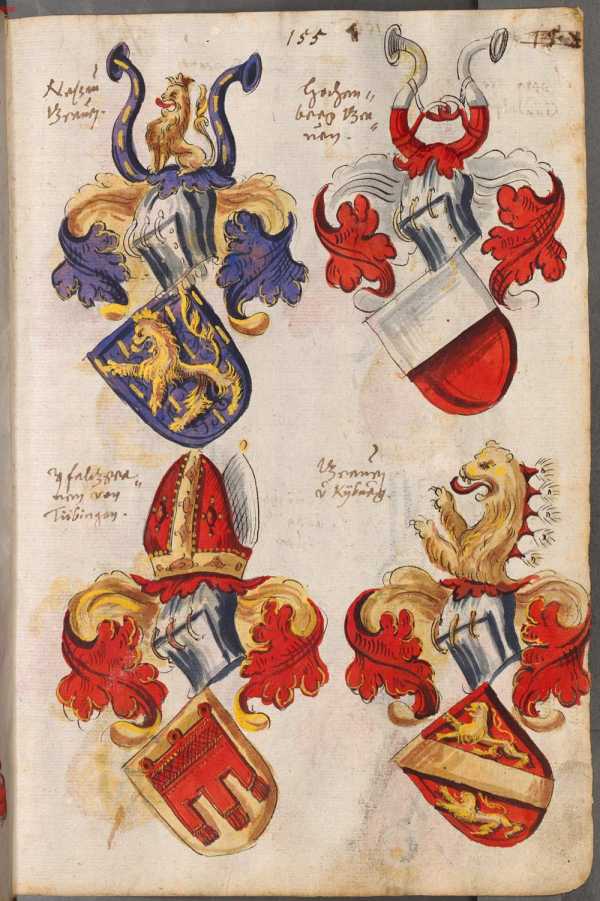 155
Nassau
Graven.
Hochen-
berg Gra-
ven.
pfaltzgra-
ven von
Tübingen.
Graven
v Kyburg.